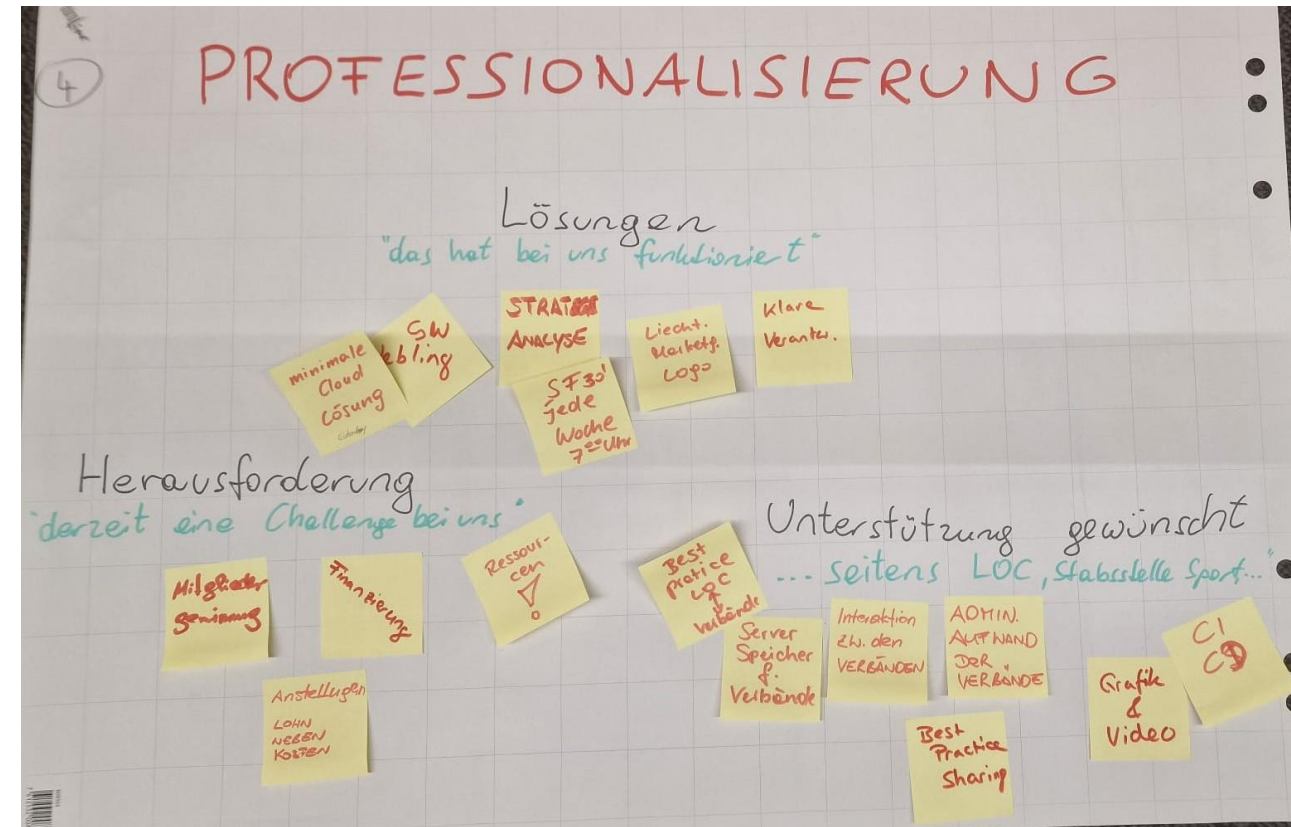 4
PROFESSIONALISIERUNG
Lösungen
"das hat bei uns funktioniert"
minimale
Cloud
Lösung
SW
STRAT
ANALYSE
SF 30'
jede
Woche
7⁰⁰ Uhr
Liecht.
Marketg.
Logo
Klare
Verantw.
Herausforderung
"derzeit eine Challenge bei uns"
Mitglieder
gewinnung
Finanzierung
Ressour-
cen
!
Anstellugen
LOHN
NEBEN
KOSTEN
Unterstützung gewünscht
... seitens LOC, Stabsstelle Sport..."
Best
pratice
LOC
Verbände
Server
Speicher
f.
Verbände
Interaktion
zw. den
VERBÄNDEN
ADMIN.
AUFWAND
DER
VERBÄNDE
Best
Practice
Sharing
Grafik
&
Video
CI
CD